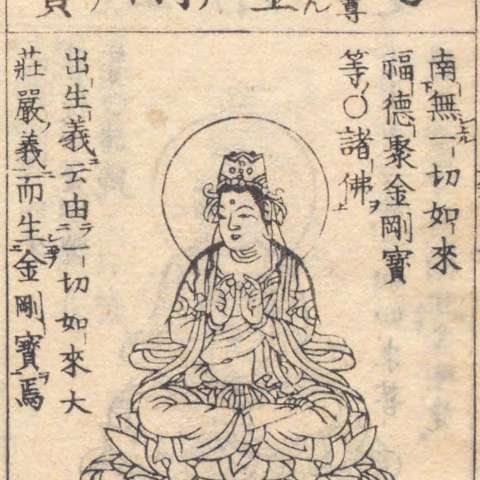 南無一切如來
福德聚金剛寶
等〇諸佛ヲ
出生義云由一切如來大
莊嚴義而生金剛寶焉